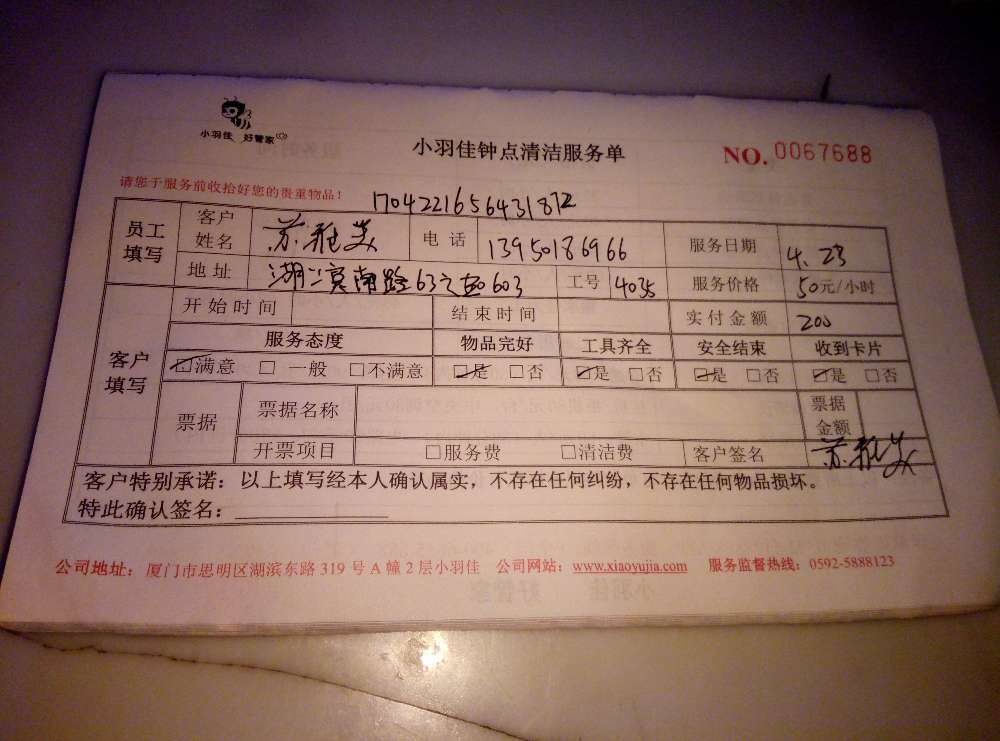 小羽佳 好管家
小羽佳钟点清洁服务单
NO. 0067688
请您于服务前收拾好您的贵重物品!
1704221656431872
员工填写 客户姓名 苏雅美 电话 13950186966 服务日期 4.23
地址 湖滨南路63之 603 工号 4035 服务价格 50元/小时
客户填写 开始时间 结束时间 实付金额 200
服务态度 物品完好 工具齐全 安全结束 收到卡片
☑满意 □一般 □不满意 ☑是 □否 ☑是 □否 ☑是 □否 ☑是 □否
票据 票据名称 票据金额
开票项目 □服务费 □清洁费 客户签名 苏雅美
客户特别承诺:以上填写经本人确认属实,不存在任何纠纷,不存在任何物品损坏。
特此确认签名:
公司地址:厦门市思明区湖滨东路319号A幢2层小羽佳 公司网站:www.xiaoyujia.com 服务监督热线:0592-5888123